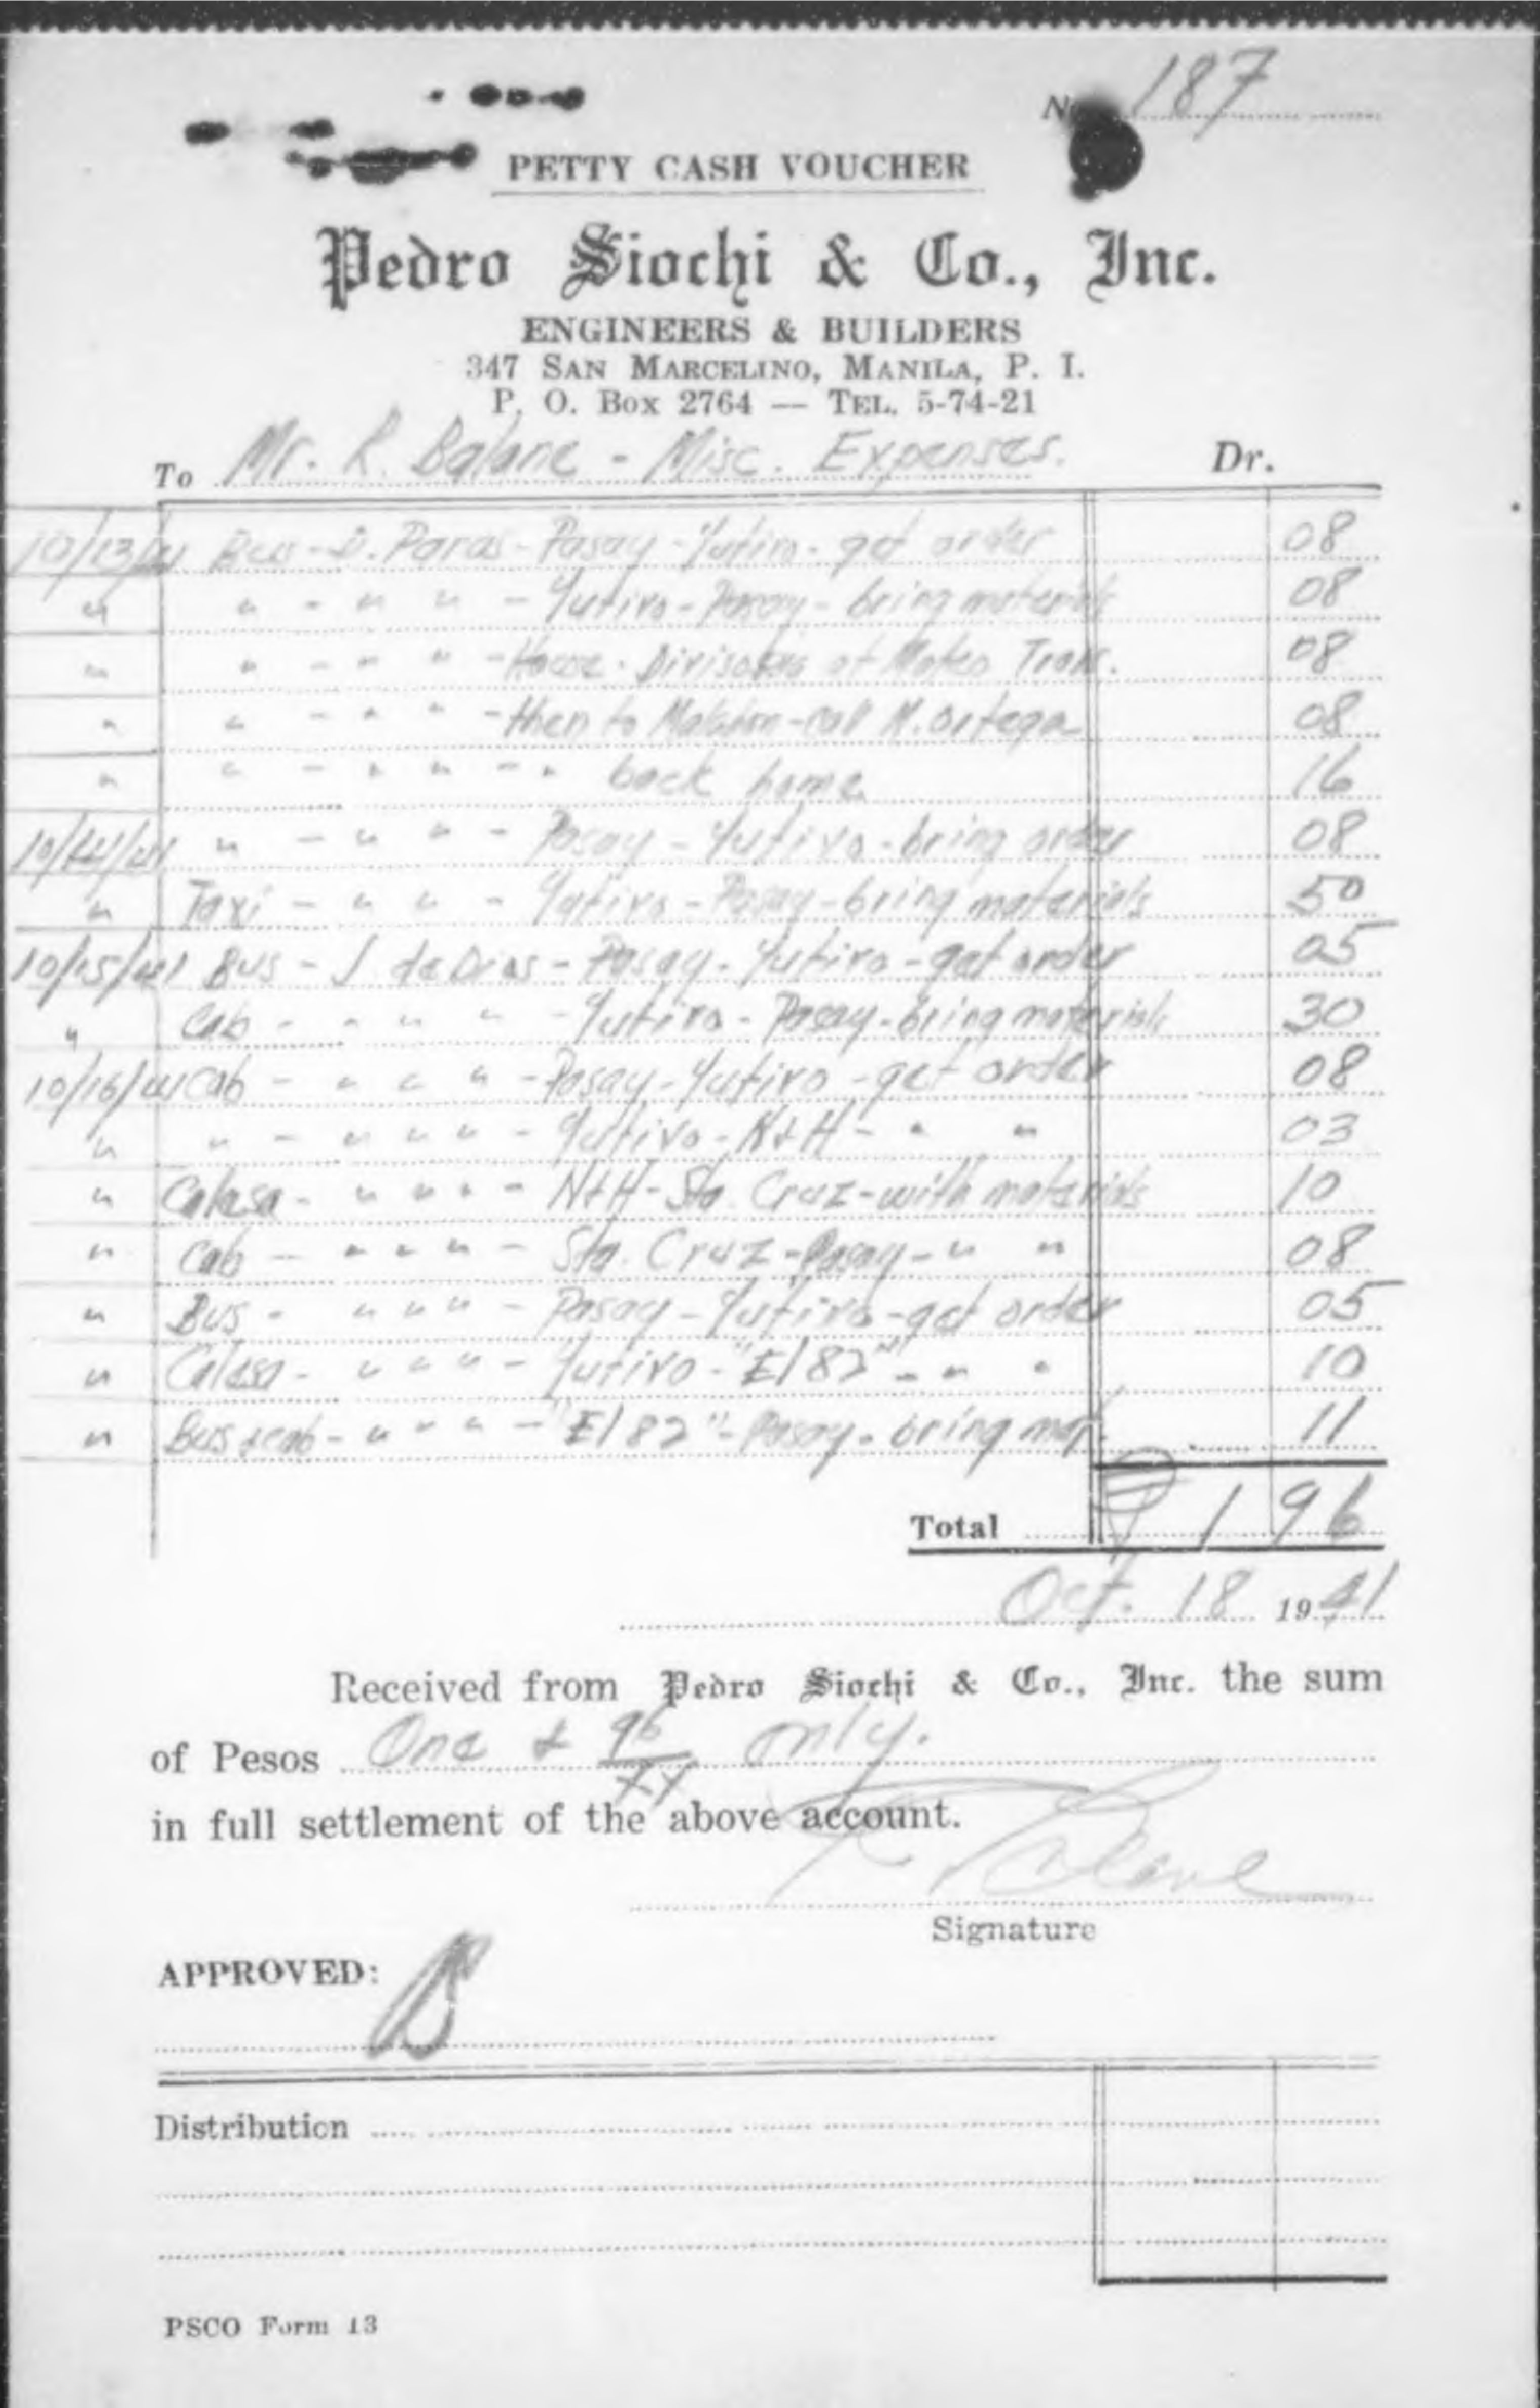 No. 187
PETTY CASH VOUCHER
Pedro Siochi & Co., Inc.
ENGINEERS & BUILDERS
347 SAN MARCELINO, MANILA, P. I.
P. O. Box 2764 — TEL. 5-74-21
To Mr. R. Balane - Misc. Expenses. Dr.
10/13/41 Bus - D. Paras - Pasay - Yutivo - get order 08
" " - " " - Yutivo - Pasay - bring materials 08
" " - " " - House - Divisoria at Mateo Trans. 08
" " - " " - then to - call M. Ortega 08
" " - " " - " back home 16
10/14/41 " - " " - Pasay - Yutivo - bring order 08
" Taxi - " " - Yutivo - Pasay - bring materials 50
10/15/41 Bus - J de Dios - Pasay - Yutivo - get order 05
" Cab - " " " - Yutivo - Pasay - bring materials 30
10/16/41 Cab - " " " - Pasay - Yutivo - get order 08
" " - " " " - Yutivo - N&H - " " 03
" Calesa - " " " - N&H - Sta. Cruz - with materials 10
" Cab - " " " - Sta. Cruz - Pasay - " " 08
" Bus - " " " - Pasay - Yutivo - get order 05
" Calesa - " " " - Yutivo - "E/82" - " " 10
" Bus & cab - " " " - "E/82" - Pasay - bring mat. 11
Total ₱ 1 96
Oct. 18 1941
Received from Pedro Siochi & Co., Inc. the sum
of Pesos One & 96/xx only.
in full settlement of the above account.
R Balane
Signature
APPROVED:
B
Distribution
PSCO Form 13